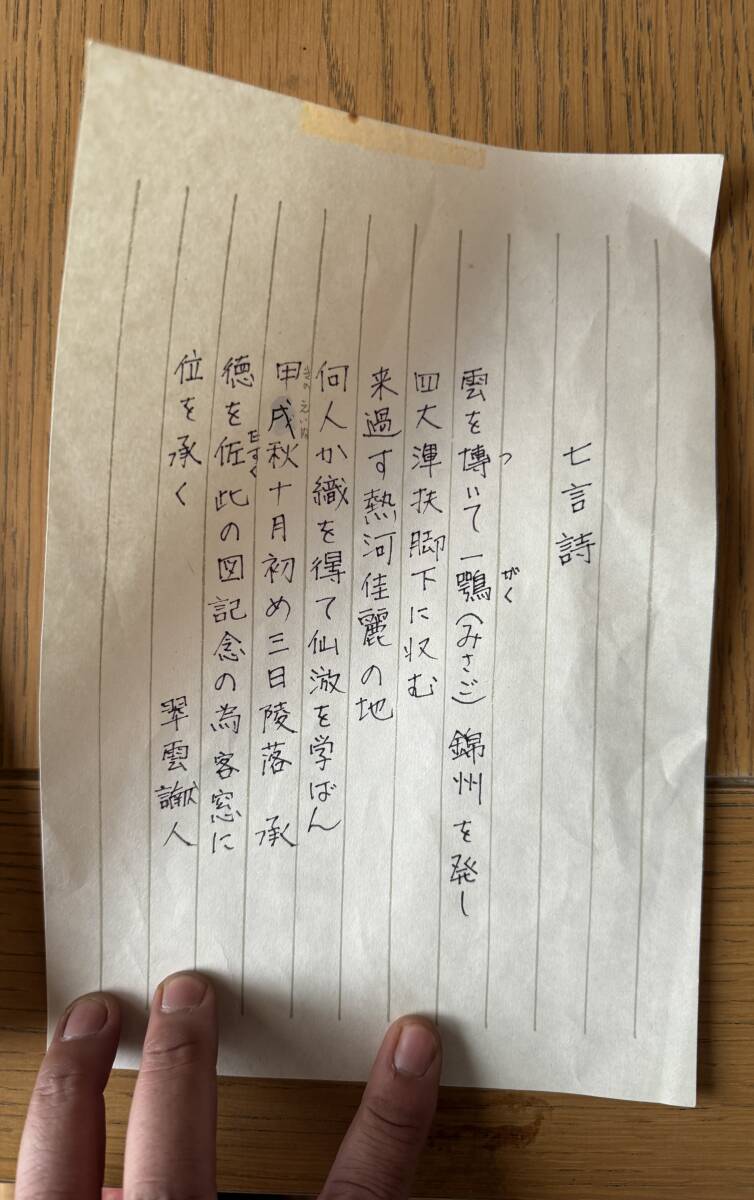 七言詩
雲を搏いて一鶚(みさご)錦州を発し
つ
がく
四大渾扶脚下に収む
来過す熱河佳麗の地
何人か織を得て仙激を学ばん
甲戌秋十月初め三日陵落 承
きのえいぬ
徳を佐此の図記念の為客窓に
たすく
位を承く
翠雲 人